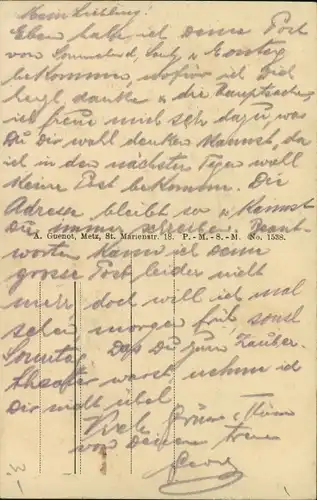 Mein Liebling!
Eben habe ich Deine Post
von Sonnabend, Sonntag
bekommen, wofür ich Dir
herzl. danke & die Hauptsache,
ich freue mich sehr dazu, was
Du Dir wohl denken kannst, da
ich in den nächsten Tagen wohl
keine Post bekomme. Die
Adresse bleibt so & kannst
Du immer schreiben. Beant-
A. Guenot, Metz, St. Marienstr. 18. P.-M.-S.-M. No. 1538.
worten kann ich Deine
grosse Post leider nicht
mehr, doch will ich mal
sehen morgen früh, sonst
Sonntag. Das Du zum Zauber-
theater warst nehme ich
Dir nicht übel.
Viele Grüsse & Küsse
von Deinem treuen
Georg